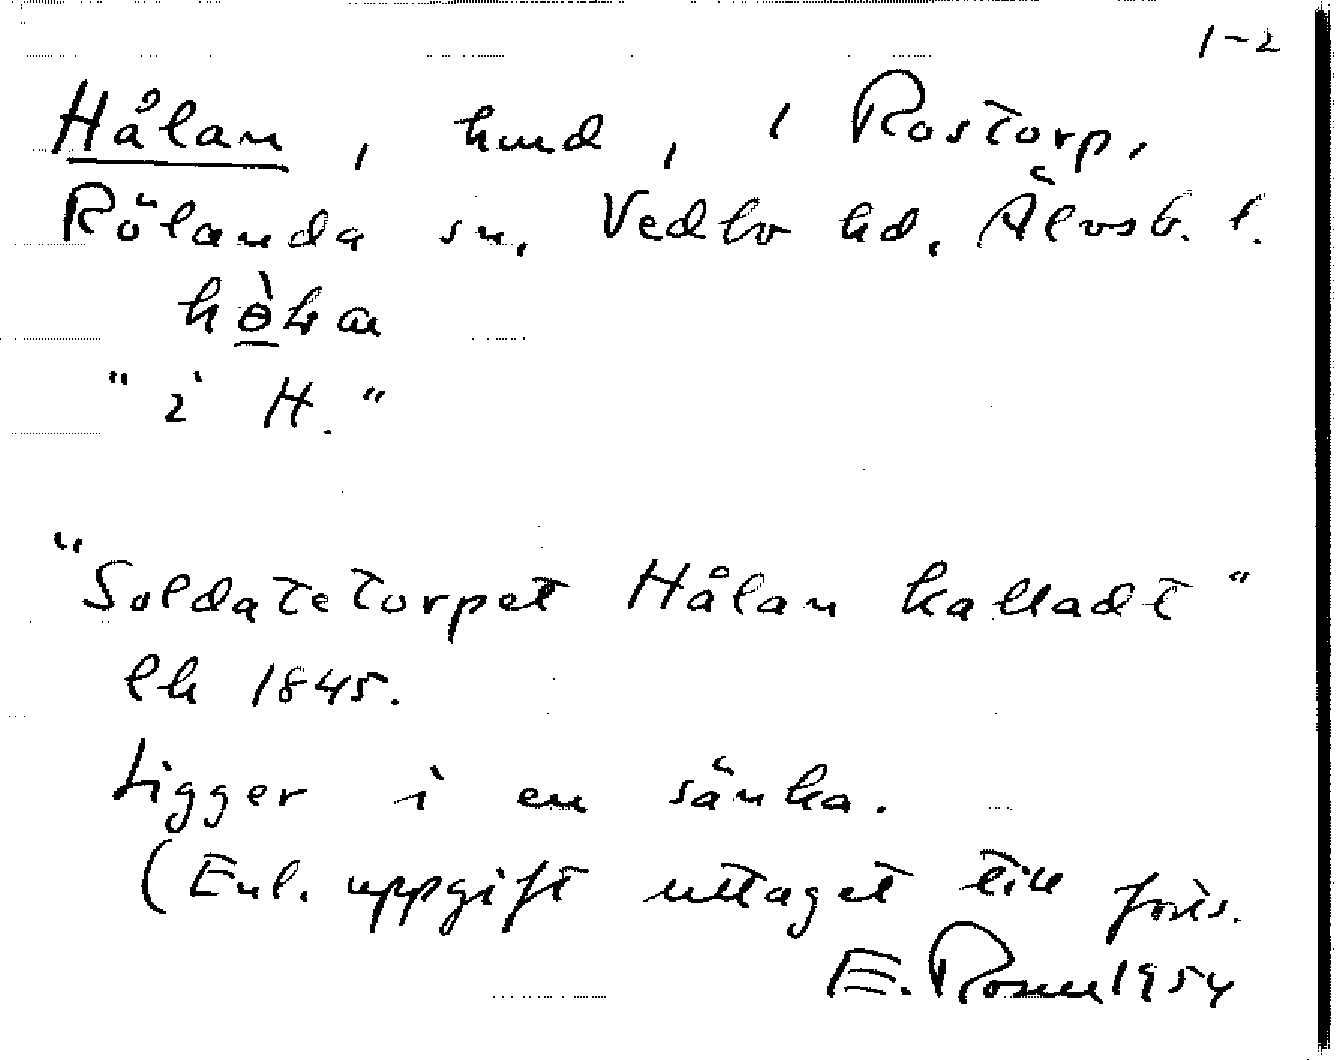 1-2
Hålan, hmd, i Rostorp,
Rölanda sn, Vedbo hd, Älvsb. l.
"i H."
"Soldatetorpet Hålan kalladt"
lh 1845.
Ligger i en sänka.
(Enl. uppgift uttaget till
E. Rosell 1954